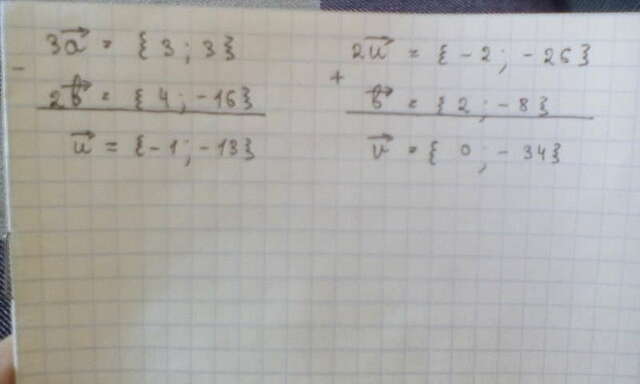 3a⃗ = { 3 ; 3 }
-
2b⃗ = { 4 ; -16 }
u⃗ = { -1 ; -13 }
2u⃗ = { -2 ; -26 }
+
b⃗ = { 2 ; -8 }
v⃗ = { 0 ; - 34 }